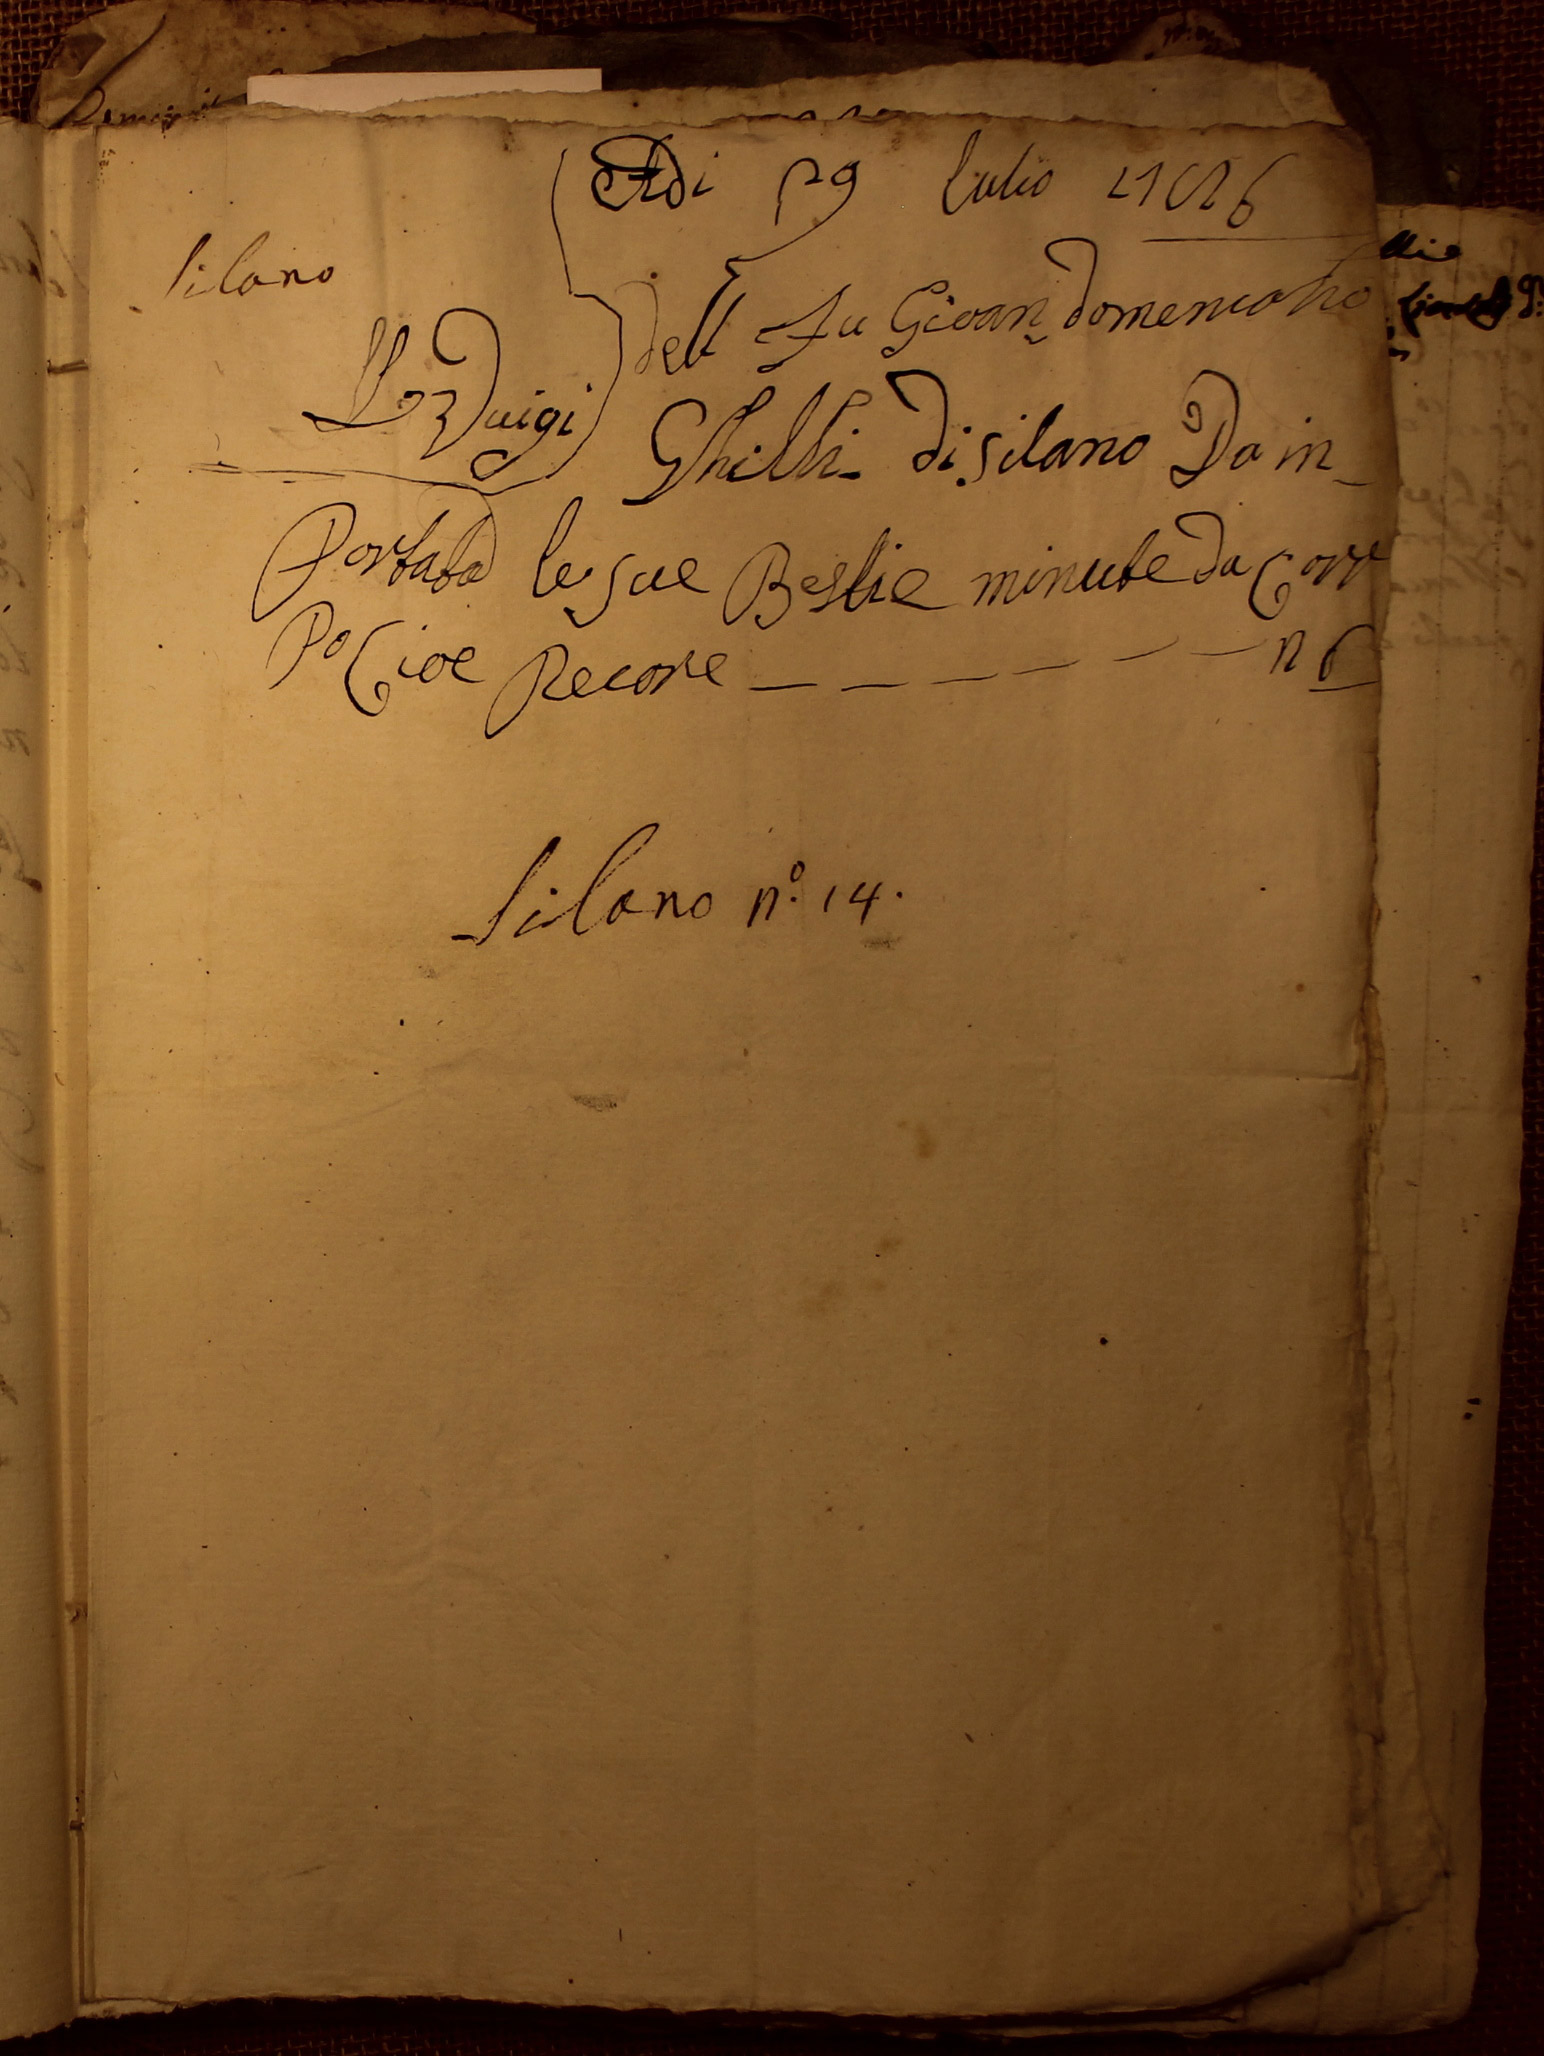 Adi 29 lulio
Silano
dell fu Gioan domenicho
Luigi
Ghilli di silano Da in_
Portata le sue Bestie minute da Corr
Po Cioe Pecore _ _ _ _ _ _ _ n 6
Silano nº 14.